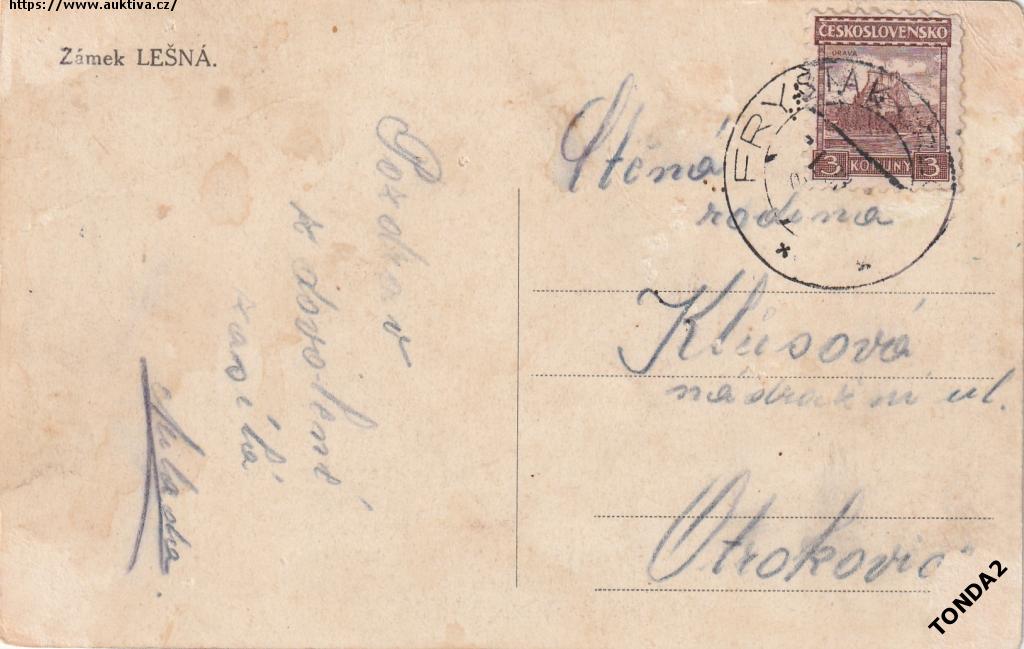 https://www.auktiva.cz/
Zámek LEŠNÁ.
ČESKOSLOVENSKO
ORAVA
3 KORUNY 3
FRYŠTÁK
Pozdrav
z dovolené
zasílá
Milada
Ctěná
rodina
Klusová
nádražní ul.
Otrokovic
TONDA2